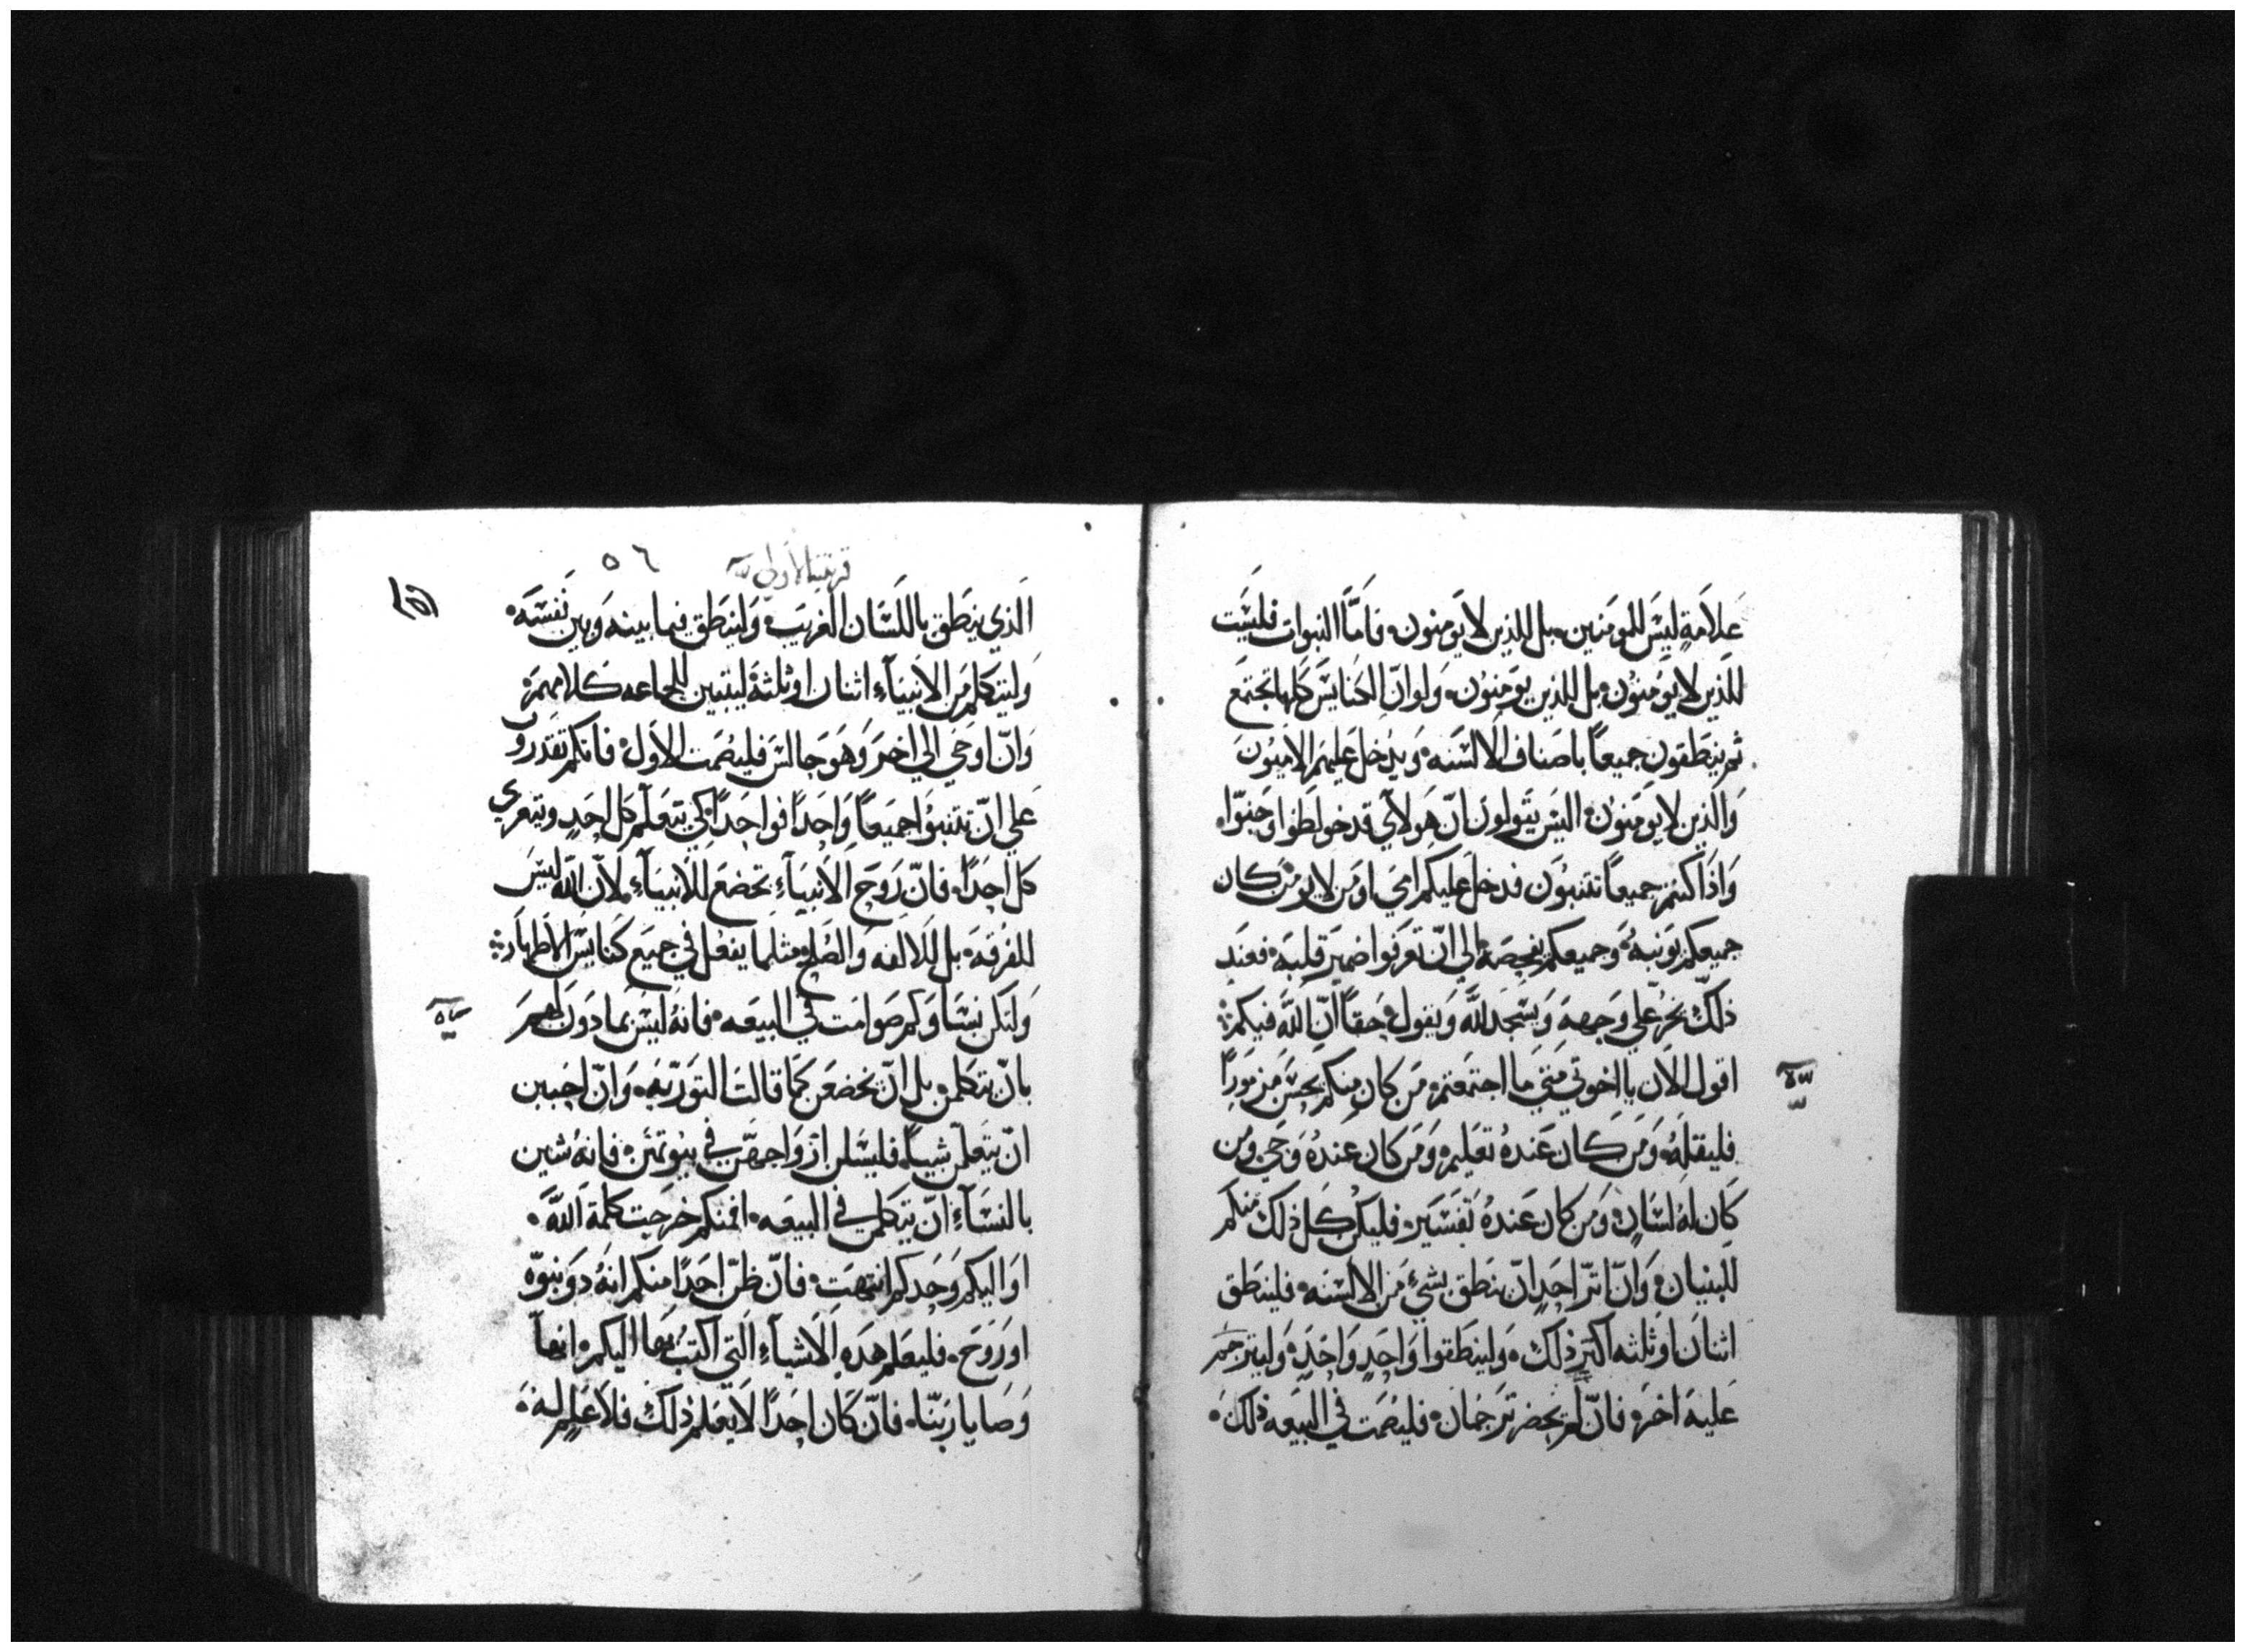 عَلاَمةٍ ليَسَ للمومَنين، بل للذين لا يَومنون، فامَّا النبوات فليَسَت
للذين لا يَومنُون، بل للذين يَومَنِون، وَلو انّ الكنايسَ كلها تجتمَع
ثم ينطَقون جميعاً باصَناف الالسَنه، وَيدخل عَليهَم الاميَونَ
وَالذين لا يَومَنون، اليسَ يَقولونَ انّ هَولآي قد خولطَوا وَجنوّا،
وَاذا كنتم جميعاً تتنبوُن فدخل عَليكم اميَ، اوَ مَن لا يومَن، كان
جميعكم يَونبهُ، وَجميعكم يفحصَه، الي انّ تعرَفوا ضميَر قلبَه، فعَند
ذلكّ يخرّ عَلي وَجههِ وَيسَجد للَّه وَيقول، حَقاً انّ اللَّه فيكم:
اقول الاَن يا اخوتي مَتيَ ما اجتمَعتم، مَن كان منكم يحسَن مَزمَوراً
فليقلهُ، وَمَن كان عَندهُ تعَليم، وَمَن كان عَندهُ وَحَي، ومَن
كَان لهُ لسَان، وَمَن كان عَندهُ تَفسَير، فليكن كل ذلك منكم
للبنيان، وَانّ اثرّ احَدٍ انّ ينطَق بشيءٍ مَن الالسَنه، فلينطَق
اثنان اوَ ثلثه اكثر ذلك، وَلينطَقوا وَاحدٍ وَاحدٍ، وَليترجم
عَليهَ اخَر، فانّ لم يحضر ترَجمان، فليصَمَت في البيَعه ذلك،
قرنتيا لاولي
٥٦
الَذي ينطَق باللسَان الغريَب، وَلينطَق فيما بينه وَبين نَفسَه،
وَليتكلم مَن الاَنبيَآءِ اثنان اوَ ثلثة ليتبين للجماعه كلامهمَ،
وَانّ اوحَي الي اخرَ وَهوَ جالسَ فليصَمَت الاَول، فانكم تقدَرون
عَلي انّ تتنبوُا جميَعاً وَاحَداً فواحَداً، كي يتعَلم كل احَدٍ ويتعري
كل احَداً، فانّ رَوحَ الاَنبيَآءِ تخضعَ للاَنبيَآءِ، لاَنّ اللّه ليسَ
للفرَقهَ، بل للاَلفه وَالصَلح، مثلما يفعَل في جميَع كنايسَ الاطهار:
وَلتكن نسَاوَكم صَوامَت في البيَعه، فانهُ ليسَ بماذوَن لهمَ
بانّ يتكلمن، بل انّ يخضعَن كمَا قالت التوَرَيهَ، وَانّ احَببن
انّ يتَعَلمّن شياً، فليسَلن ازوَاجهَنّ في بيوتهَن، فانهُ شين
بالنسَآءِ انّ يتكلمن في البيَعَه، افمنكم خرَجت كلمة اللَّه،
اوَ اليكم وَحَدكم انتهَت، فانّ ظنّ احَداً منكم انهُ ذوَ نبوّه
اوَ رَوحَ، فليعَلم هَذهِ الاَشيآءِ التي اكتبُ بهَا اليكم، انهاَ
وَصَايا رَبنّا، فانّ كَان احَداً لاَ يعَلم ذلك، فلاَ عَلِم له،